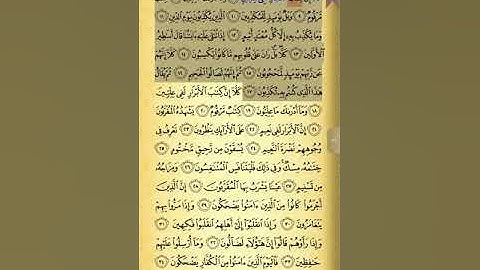 مَّرْقُومٌ ۝٩ وَيْلٌ يَوْمَئِذٍ لِّلْمُكَذِّبِينَ ۝١٠ ٱلَّذِينَ يُكَذِّبُونَ بِيَوْمِ ٱلدِّينِ ۝١١
وَمَا يُكَذِّبُ بِهِۦٓ إِلَّا كُلُّ مُعْتَدٍ أَثِيمٍ ۝١٢ إِذَا تُتْلَىٰ عَلَيْهِ ءَايَٰتُنَا قَالَ أَسَٰطِيرُ
ٱلْأَوَّلِينَ ۝١٣ كَلَّا بَلْ رَانَ عَلَىٰ قُلُوبِهِم مَّا كَانُوا۟ يَكْسِبُونَ ۝١٤ كَلَّآ إِنَّهُمْ
عَن رَّبِّهِمْ يَوْمَئِذٍ لَّمَحْجُوبُونَ ۝١٥ ثُمَّ إِنَّهُمْ لَصَالُوا۟ ٱلْجَحِيمِ ۝١٦ ثُمَّ يُقَالُ
هَٰذَا ٱلَّذِى كُنتُم بِهِۦ تُكَذِّبُونَ ۝١٧ كَلَّآ إِنَّ كِتَٰبَ ٱلْأَبْرَارِ لَفِى عِلِّيِّينَ
۝١٨ وَمَآ أَدْرَىٰكَ مَا عِلِّيُّونَ ۝١٩ كِتَٰبٌ مَّرْقُومٌ ۝٢٠ يَشْهَدُهُ ٱلْمُقَرَّبُونَ
۝٢١ إِنَّ ٱلْأَبْرَارَ لَفِى نَعِيمٍ ۝٢٢ عَلَى ٱلْأَرَآئِكِ يَنظُرُونَ ۝٢٣ تَعْرِفُ فِى
وُجُوهِهِمْ نَضْرَةَ ٱلنَّعِيمِ ۝٢٤ يُسْقَوْنَ مِن رَّحِيقٍ مَّخْتُومٍ ۝٢٥
خِتَٰمُهُۥ مِسْكٌ وَفِى ذَٰلِكَ فَلْيَتَنَافَسِ ٱلْمُتَنَٰفِسُونَ ۝٢٦ وَمِزَاجُهُۥ
مِن تَسْنِيمٍ ۝٢٧ عَيْنًا يَشْرَبُ بِهَا ٱلْمُقَرَّبُونَ ۝٢٨ إِنَّ ٱلَّذِينَ
أَجْرَمُوا۟ كَانُوا۟ مِنَ ٱلَّذِينَ ءَامَنُوا۟ يَضْحَكُونَ ۝٢٩ وَإِذَا مَرُّوا۟ بِهِمْ
يَتَغَامَزُونَ ۝٣٠ وَإِذَا ٱنقَلَبُوٓا۟ إِلَىٰٓ أَهْلِهِمُ ٱنقَلَبُوا۟ فَكِهِينَ ۝٣١
وَإِذَا رَأَوْهُمْ قَالُوٓا۟ إِنَّ هَٰٓؤُلَآءِ لَضَآلُّونَ ۝٣٢ وَمَآ أُرْسِلُوا۟ عَلَيْهِمْ
حَٰفِظِينَ ۝٣٣ فَٱلْيَوْمَ ٱلَّذِينَ ءَامَنُوا۟ مِنَ ٱلْكُفَّارِ يَضْحَكُونَ ۝٣٤